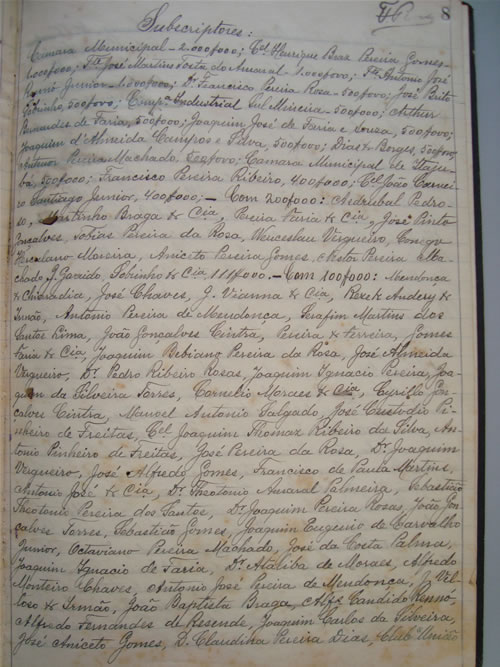 8
Subscriptores:
Camara Municipal - 2.000$000; Cel Henrique Braz Pereira Gomes -
1.000$000; José Martins do Amaral - 1.000$000; Antonio José
Junior - 1.000$000; Dr. Francisco Pereira Rosa - 500$000; José Brito
Sobrinho, 500$000; Comp. Industrial Sul Mineira - 500$000; Arthur
Fernandes de Faria, 500$000; Joaquim José de Faria e Souza, 500$000;
Joaquim d'Almeida Campios e Silva, 500$000; Dias & Borges, 500$000;
Antenor Pereira Machado, 500$000; Camara Municipal de Itaju-
bá, 500$000; Francisco Pereira Ribeiro, 400$000; Cel João Carnei-
ro Santiago Junior, 400$000, - Com 200$000: Asdrubal Pedro-
so, Martinho Braga & Cia, Pereira Faria & Cia, José Pinto
Gonçalves, Tobias Pereira da Rosa, Wenceslau Virgueiro, Conego
Herculano Moreira, Aniceto Pereira Gomes, Nestor Pereira Ma-
chado, J. Sobrinho & Cia 111$000. - Com 100$000: Mendonça
& Chiaradia, José Chaves, J. Vianna & Cia, Andery &
Irmão, Antonio Pereira de Mendonça, Serafim Martins dos
Santos Lima, João Gonçalves Cintra, Pereira & Ferreira, Gomes
Faria & Cia, Joaquim Bebiano Pereira da Rosa, José Almeida
Vergueiro, Dr. Pedro Ribeiro Rosas, Joaquim Ignacio Pereira, Joa-
quim da Silveira Torres, Cornelio Moraes & Cia, Cyrillo Gon-
çalves Cintra, Manoel Antonio Salgado, José Custodio Pi-
nheiro de Freitas, Cel Joaquim Thomaz Ribeiro da Silva, An-
tonio Pinheiro de Freitas, José Pereira da Rosa, Dr. Joaquim
Vergueiro, José Alfredo Gomes, Francisco de Paula Martins,
Antonio José & Cia, Dr. Theotonio Amaral Palmeira, Sebastião
Theotonio Pereira dos Santos, Dr. Joaquim Pereira Rosas, João Gon-
çalves Torres, Sebastião Gomes, Joaquim Eugenio de Carvalho
Junior, Octaviano Pereira Machado, José da Costa Palma,
Joaquim Ignacio de Faria, Dr. Ataliba de Moraes, Alfredo
Monteiro Chaves, Antonio José Pereira de Mendonça, J. Vil-
loso & Irmão, João Baptista Braga, Alfs Candido Rennó,
Alfredo Fernandes de Resende, Joaquim Carlos da Silveira,
José Aniceto Gomes, D. Claudina Pereira Dias, Club União